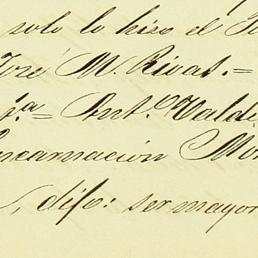 solo lo hizo el
José M. Rivas.=
j.ª= Ant.º Valde
Encarnación Mo
, dijo: ser mayor